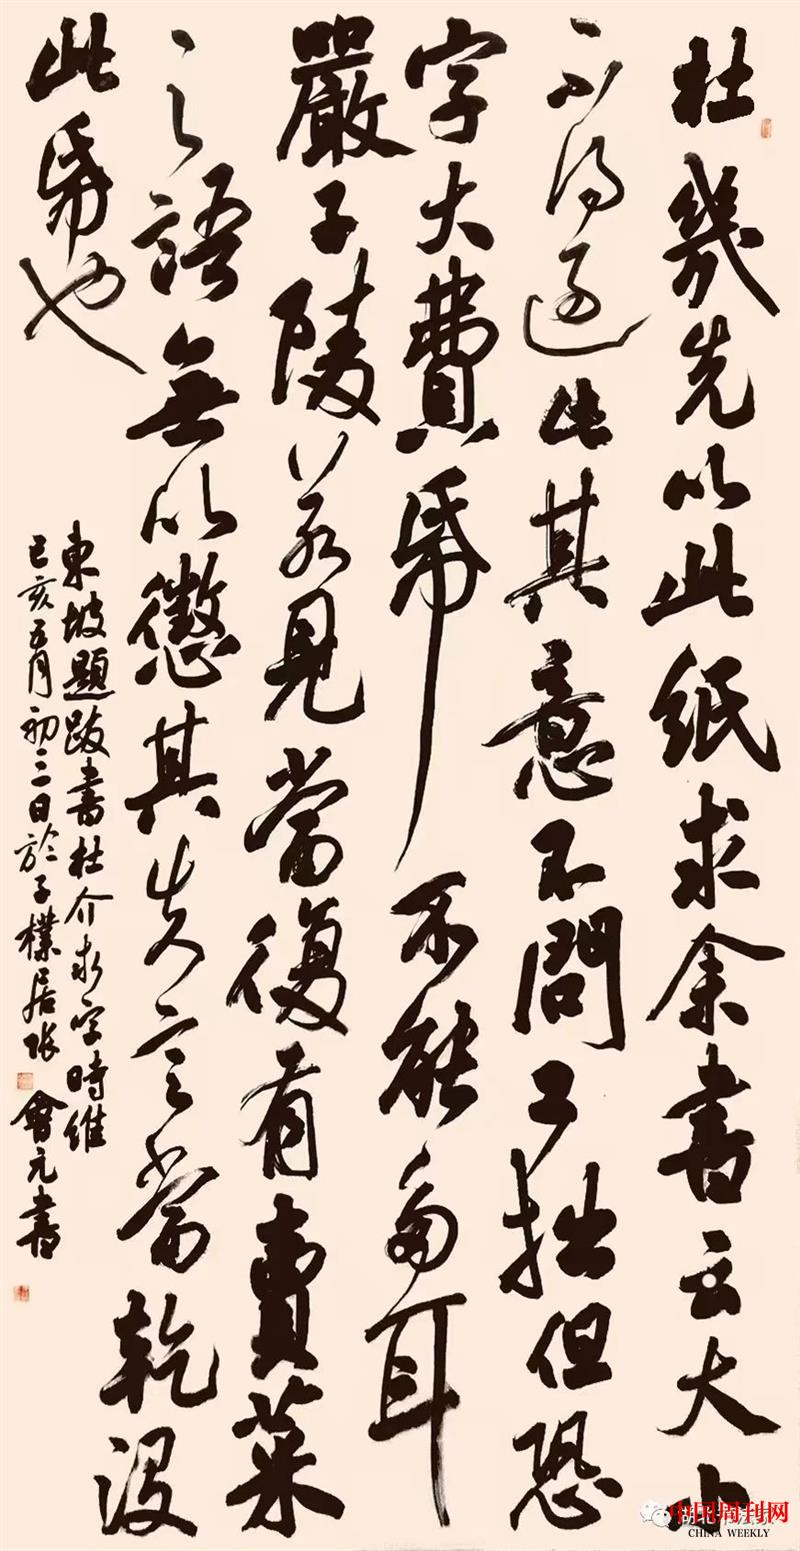 杜幾先以此紙求余書云大小
不得過此其意不問工拙但恐
字大費帋不能多耳
嚴子陵若見當復有賣菜
之語無以懲其失言當乾没
此帋也
東坡題跋書杜介求字時維
己亥五月初三日於子樸居張會元書
中国周刊网
CHINA WEEKLY